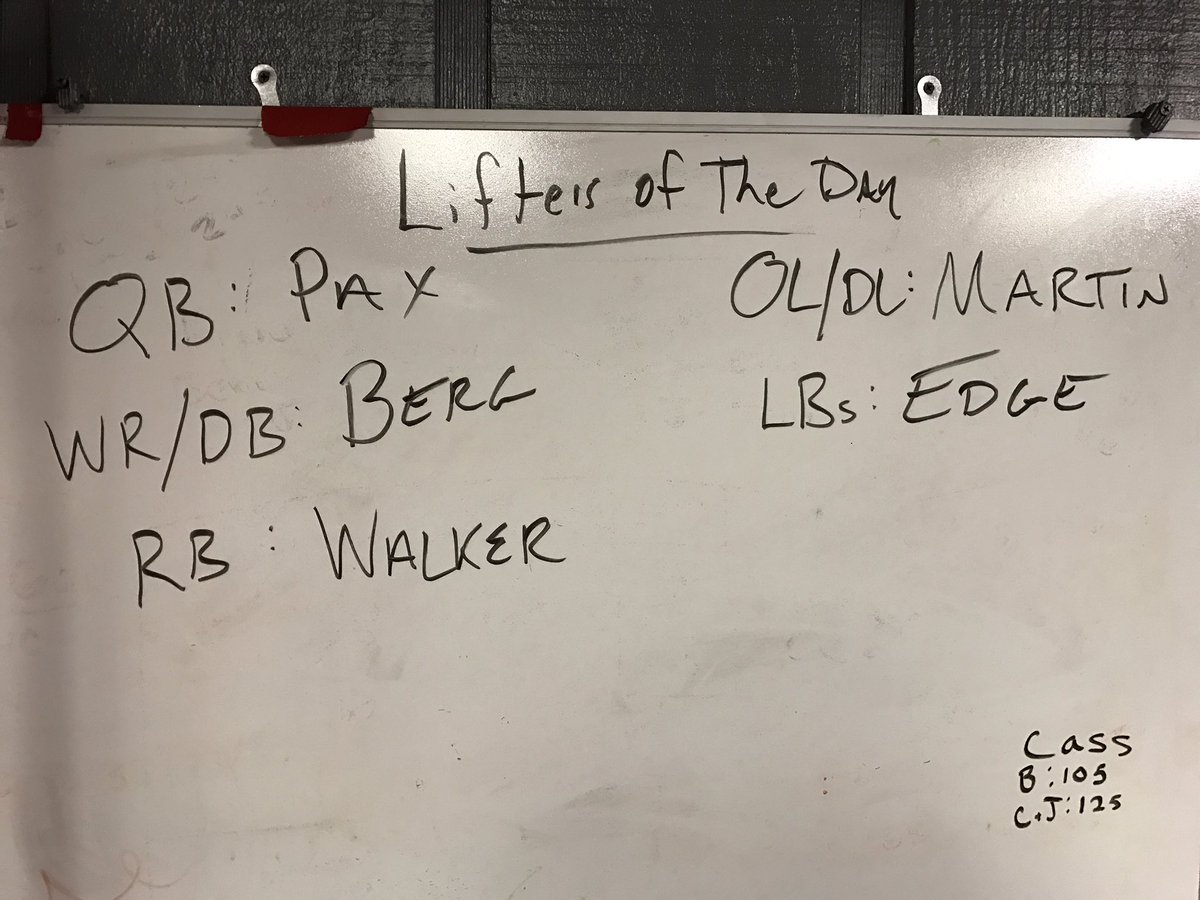 Lifters of The Day
QB: PAX
WR/DB: BERG
RB: WALKER
OL/DL: MARTIN
LBs: EDGE
Cass
B:105
C+J:125